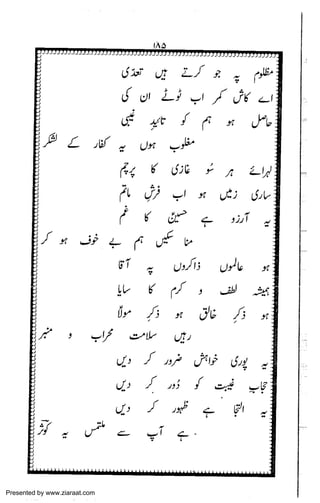 ۱۸۵
مظلوم پہ جو کرتے ہیں تعدّی
اے کاش کمر اب ٹوٹے ان کی
حاصل ہو ہم کو تائیدِ غیبی
مغلوب ہوں یہ کفار کے لشکر
لہرائے ہر سُو غازی کا پرچم
ساری زمیں ہو اب فرشِ ماتم
یہ آرزو ہے حسینؑ کا غم
منا سکیں ہم بے خوف ہو کر
ہو عالموں ذاکروں پہ آقا
ہمیشہ لطف و کرم کا سایا
ہو ذکرِ خالق ہو ذکرِ مولاؑ
رہیں سلامت محراب و منبر
یہ پوری خواہش ضرور کر دیں
حجابِ غیبت کو دُور کر دیں
یہ التجا ہے ظہور کر دیں
ہے آپ سے ملتمس یہ کوثر
Presented by www.ziaraat.com